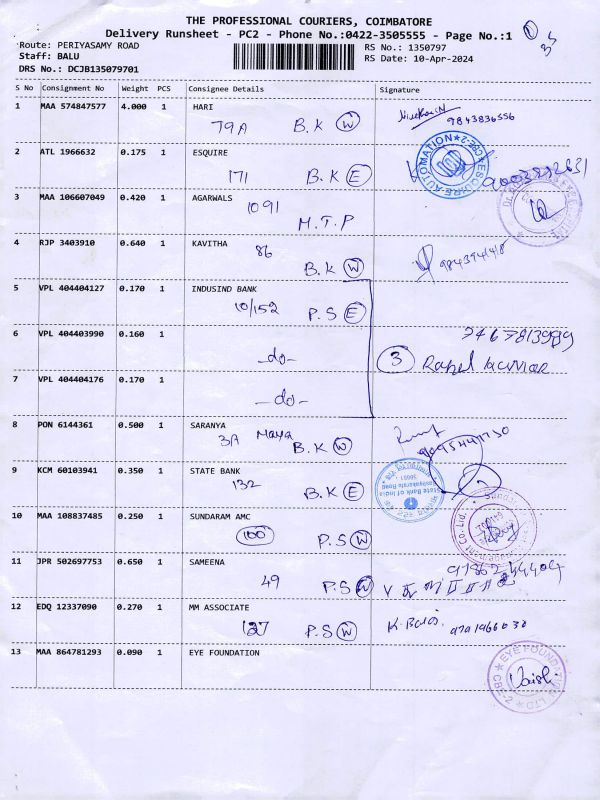 THE PROFESSIONAL COURIERS, COIMBATORE
Delivery Runsheet - PC2 - Phone No.:0422-3505555 - Page No.:1
Route: PERIYASAMY ROAD
Staff: BALU
DRS No.: DCJB135079701
RS No.: 1350797
RS Date: 10-Apr-2024
S No Consignment No Weight PCS Consignee Details Signature
1 MAA 574847577 4.000 1 HARI
79A B.K W
9843836556
2 ATL 1966632 0.175 1 ESQUIRE
171 B.K E
3 MAA 106607049 0.420 1 AGARWALS
1091
M.T.P
4 RJP 3403910 0.640 1 KAVITHA
86
B.K W
5 VPL 404404127 0.170 1 INDUSIND BANK
10/152 P.S E
6 VPL 404403990 0.160 1
-do-
7467813989
3
7 VPL 404404176 0.170 1
-do-
8 PON 6144361 0.500 1 SARANYA
3A Maya
B.K W
9 KCM 60103941 0.350 1 STATE BANK
132
B.K E
State Bank of India
10 MAA 108837485 0.250 1 SUNDARAM AMC
100 P.S W
11 JPR 502697753 0.650 1 SAMEENA
49 P.S W
12 EDQ 12337090 0.270 1 MM ASSOCIATE
127 P.S W
13 MAA 864781293 0.090 1 EYE FOUNDATION
EYE FOUNDATION LTD
CBE-2